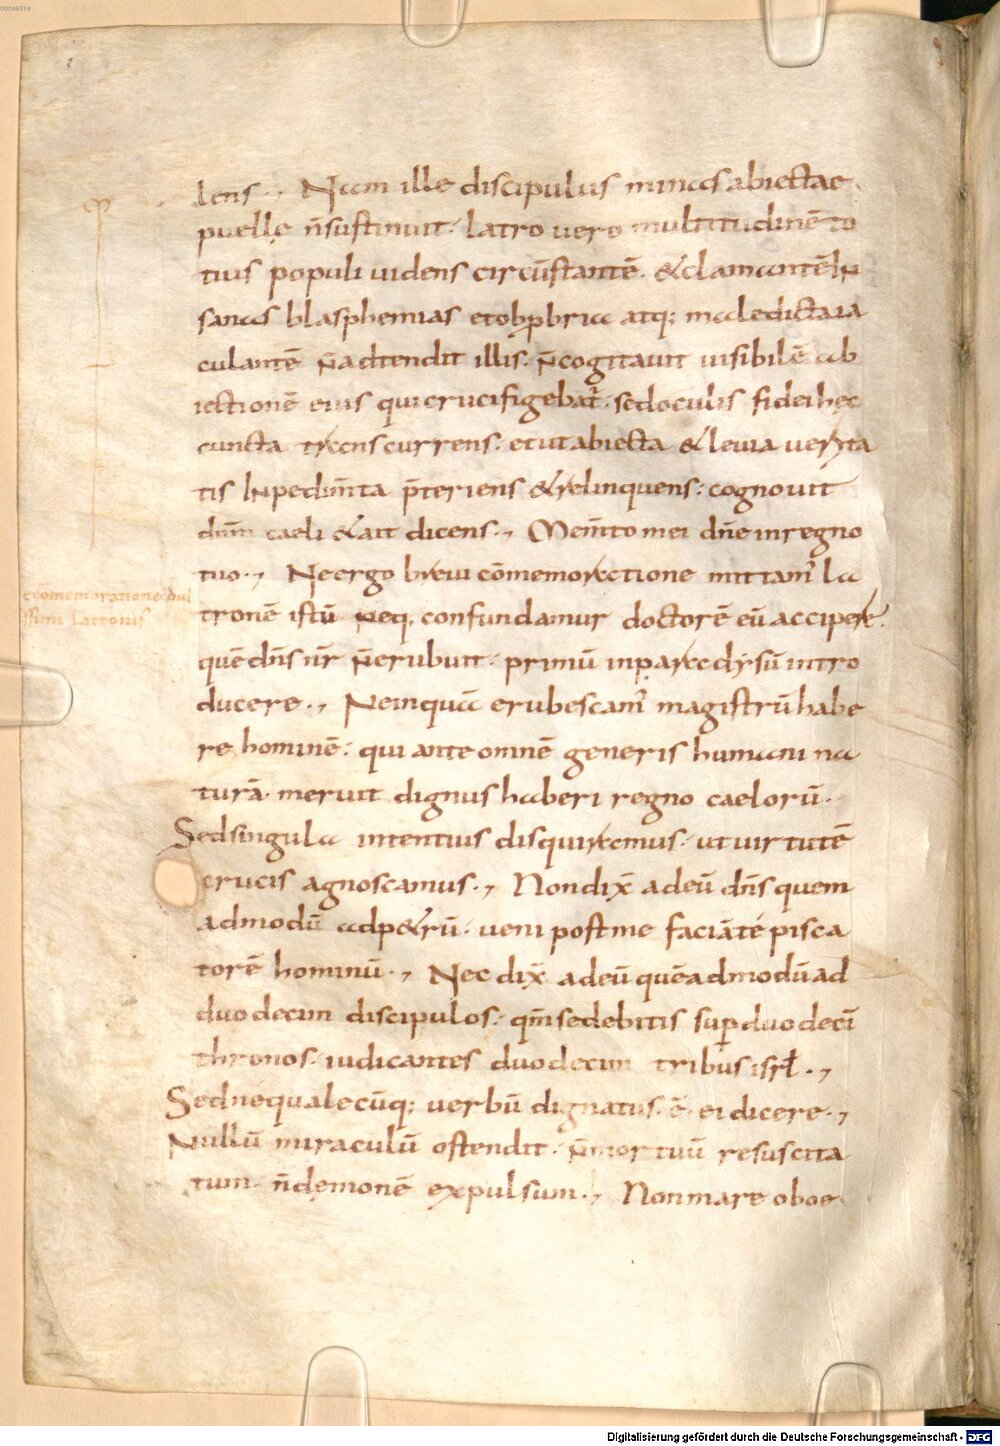 00046516
lens ., Nam ille discipulus minas abiectae
puellę n̄ sustinuit· latro uero multitudinē to
tius populi uidens circūstantē· & clamantē In
sanas blasphemias et obꝓbria atq; maledicta ia
culantē n̄ adtendit illis· n̄ cogitauit uisibilē ab
iectionē eius qui crucifigebat᷑· sed oculis fidei hęc
cuncta transcurrens· et ut abiecta & leuia uerita
tis Inpedim̄ta p̄teriens & relinquens· cognouit
dn̄m caeli & ait dicens ., Mem̄to mei dn̄e in regno
tuo ., Ne ergo breui cōmemoratione mittam᷒ la
tronē istū neq, confundamur doctorē eū accipere·
quē dn̄s nr̄ n̄ erubuit· primū in paradysū intro
ducere ., Nemquā erubescam᷒ magistrū habe
re hominē· qui ante omnē generis humani na
turā· meruit dignus haberi regno caelorū·
Sed singula intentius disquiramus· ut uirtutē
crucis agnoscamus ., Non dix̄ ad eū dn̄s quem
admodū ad p&rū· ueni post me faciā te pisca
torē hominū ., Nec dix̄ ad eū quēadmodū ad
duodecim discipulos· qm̄ sedebitis suꝑ duodecī
thronos· iudicantes duodecim tribus isrł .,
Sed neq̄ualecūq; uerbū dignatus· ē· ei dicere .,
Nullū miraculū ostendit· n̄ mortuū resuscita
tum· n̄ dęmonē expulsum ., Non mare oboe
cōmemoratione pul
ssimi latronis
Digitalisierung gefördert durch die Deutsche Forschungsgemeinschaft - DFG